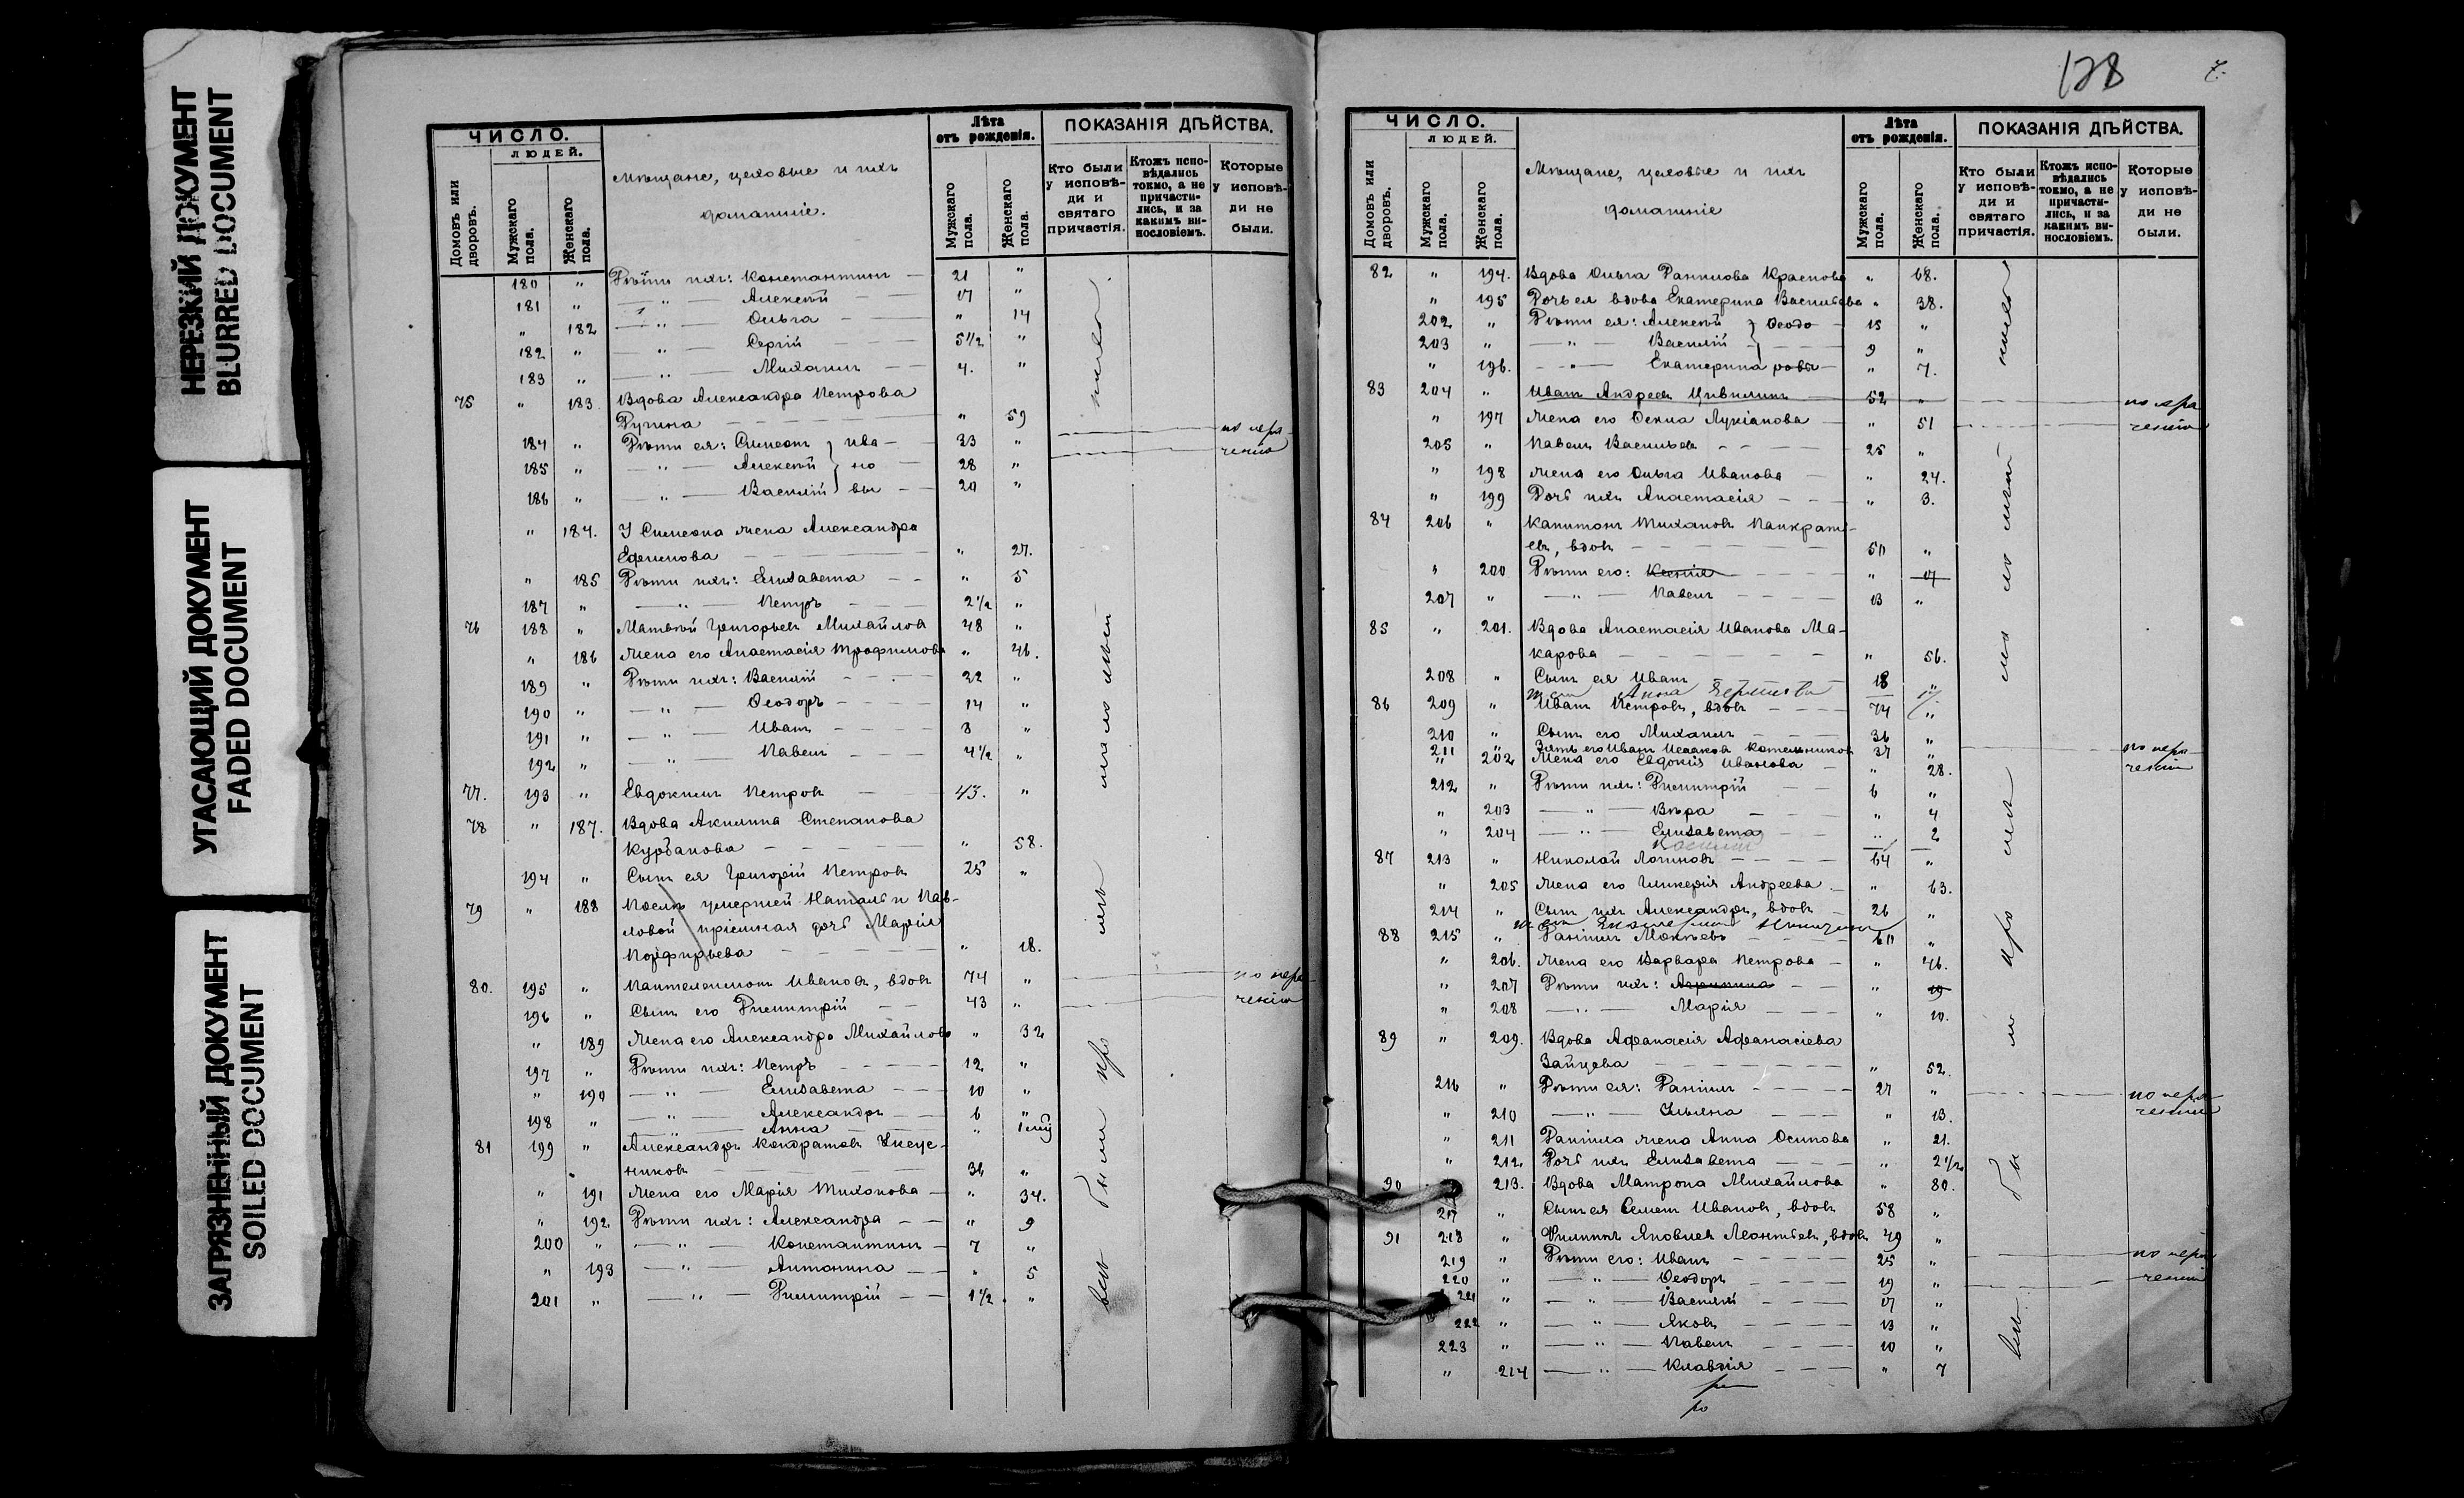 НЕРЕЗКИЙ ДОКУМЕНТ
BLURRED DOCUMENT
УГАСАЮЩИЙ ДОКУМЕНТ
FADED DOCUMENT
ЗАГРЯЗНЕННЫЙ ДОКУМЕНТ
SOILED DOCUMENT
ЧИСЛО.
ЛЮДЕЙ.
Домовъ или дворовъ.
Мужскаго пола.
Женскаго пола.
Мѣщане, цеховые и ихъ
домашніе.
Лѣта отъ рожденія.
Мужскаго пола.
Женскаго пола.
ПОКАЗАНІЯ ДѢЙСТВА.
Кто были у исповѣди и святаго причастія.
Ктожъ исповѣдались токмо, а не причастились, и за какимъ винословіемъ.
Которые у исповѣди не были.
180 " Дѣти ихъ: Константинъ — 21 "
181 " — " — Алексѣй — 17 "
" 182 — " — Ольга — " 14
182 " — " — Сергій — 5 1/2 "
183 " — " — Михаилъ — 4. "
75 " 183 Вдова Александра Петрова
" 59
184 " Дѣти ея: Симеонъ } Ива — 33 " по нера-
185 " — " — Алексѣй } но — 28 "ченію
186 " — " — Василій } вы — 20 "
" 184. У Симеона жена Александра
Ефимова — " 27.
" 185 Дѣти ихъ: Елисавета — " 5
187 " — " — Петръ — 2 1/2 "
76 188 " Матвѣй Григорьевъ Михайлов 48 "
" 186 Жена его Анастасія Трофимова " 46.
189 " Дѣти ихъ: Василій — 22 "
190 " — " — Ѳеодоръ — 14 "
191 " — " — Иванъ — 8 "
192 " — " — Павелъ — 4 1/2 "
77. 193 " Евдокимъ Петровъ — 43. "
78 " 187. Вдова Акилина Степанова
Курбанова — " 58.
194 " Сынъ ея Григорій Петровъ 25 "
79 " 188 Послѣ умершей Натальи Пав-
ловой пріемная дочь Марія
Порфирьева — " 18.
80. 195 " Пантелеимонъ Ивановъ, вдовъ 74 " по нера-
196 " Сынъ его Димитрій — 43 " ченію
" 189 Жена его Александра Михайлова " 32
197 " Дѣти ихъ: Петръ — 12 "
" 190 — " — Елисавета — 10 "
198 " — " — Александръ — 6 "
— " — Анна — "
81 199 " Александръ Кондратовъ Уксус-
никовъ — 36 "
" 191 Жена его Марія Тихонова — " 34.
" 192 Дѣти ихъ: Александра — " 9
200 " — " — Константинъ — 7 "
" 193 — " — Антонина — " 5
201 " — " — Димитрій — 1 1/2 "
128
7.
ЧИСЛО.
ЛЮДЕЙ.
Домовъ или дворовъ.
Мужскаго пола.
Женскаго пола.
Мѣщане, цеховые и ихъ
домашніе
Лѣта отъ рожденія.
Мужскаго пола.
Женскаго пола.
ПОКАЗАНІЯ ДѢЙСТВА.
Кто были у исповѣди и святаго причастія.
Ктожъ исповѣдались токмо, а не причастились, и за какимъ винословіемъ.
Которые у исповѣди не были.
82 " 194. Вдова Ольга Данилова Краснова " 68.
" 195 Дочь ея вдова Екатерина Васильева " 38.
202 " Дѣти ея: Алексѣй } Ѳеодо — 15 "
203 " — " — Василій } — 9 "
" 196. — " — Екатерина ровы — " 7.
83 204 " Иванъ Андреевъ Цивилинъ — 52 " по нера-
" 197 Жена его Ѳекла Лукіанова — " 51 ченію
205 " Павелъ Васильевъ — 25 "
" 198 Жена его Ольга Иванова — " 24.
" 199 Дочь ихъ Анастасія — " 3.
84 206 " Капитонъ Тихановъ Панкрать-
евъ, вдовъ — 50 "
" 200 Дѣти его: Ксенія — " 17
207 " — " — Павелъ — 13 "
85 " 201. Вдова Анастасія Иванова Ма-
карова — " 56.
208 " Сынъ ея Иванъ 18 "
Анна
86 209 " Иванъ Петровъ, вдовъ — 74 "
210 " Сынъ его Михаилъ — 36 "
211 " Зять его Иванъ Исааковъ Котельниковъ 37 " по нера-
" 202 Жена его Евдокія Иванова — " 28. ченію
212 " Дѣти ихъ: Димитрій — 6 "
" 203 — " — Вѣра — " 4
" 204 — " — Елисавета — " 2
87 213 " Николай Логиновъ — 64 "
" 205 Жена его Гликерія Андреева — " 63.
214 " Сынъ ихъ Александръ, вдовъ — 26 "
88 215 " Даніилъ Мокѣевъ — 60 "
" 206. Жена его Варвара Петрова — " 46.
" 207 Дѣти ихъ: Агрипина — " 19
" 208 — " — Марія — " 10.
89 " 209. Вдова Афанасія Афанасіева
Зайцева — " 52.
216 " Дѣти ея: Даніилъ — 27 " по нера-
" 210 — " — Ульяна — " 13. ченію
" 211 Даніила жена Анна Осипова " 21.
" 212 Дочь ихъ Елисавета — " 2 1/2
90 213. Вдова Матрона Михайлова " 80.
217 " Сынъ ея Семенъ Ивановъ, вдовъ 58 "
91 218 " Филиппъ Яковлев Леонтьевъ, вдовъ 49 "
219 " Дѣти его: Иванъ — 25 " по нера-
220 " — " — Ѳеодоръ — 19 " ченію
221 " — " — Василій — 17 "
222 " — " — Яковъ — 13 "
223 " — " — Павелъ — 10 "
" 214 — " — Клавдія — " 7